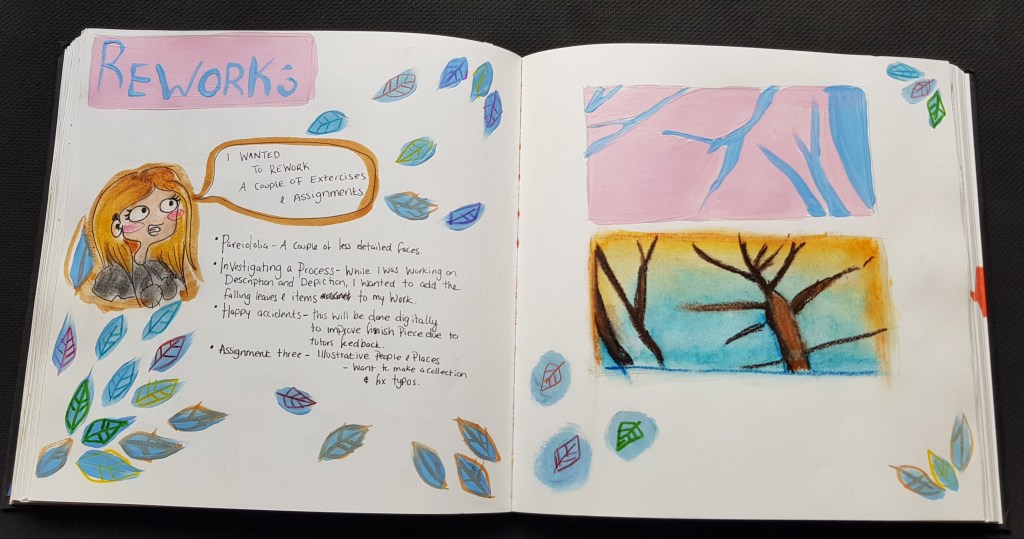 REWORKS
I WANTED
TO REWORK
A COUPLE OF EXTERCISES
& ASSIGNMENTS
• Pareidolia - A couple of less detailed faces.
• Investigating a Process - While I was working on
Description and Depiction, I wanted to add the
falling leaves & items to my work.
• Happy accidents - this will be done digitally
to improve finish piece due to
tutors feedback.
• Assignment three - Illustrative People & Places
- Want to make a collection
& fix typos.